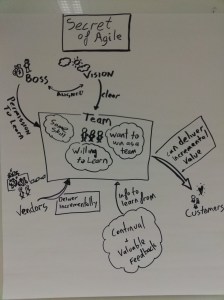 Secret
of Agile
Boss
Vision
Support
clear
Permission
to Learn
Team
Some
Skill
Want to
win as a
team
Willing
to Learn
Can deliver
incremental
Value
Customers
Vendors
Deliver
Incrementally
info to
learn from
Continual
+
Valuable
Feedback